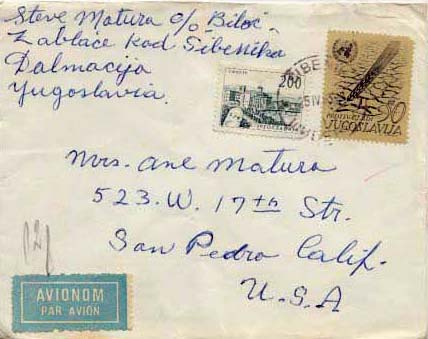 Steve Matura c/o Biloč
Zablaće kod Šibenika
Dalmacija
Yugoslavia
200
JUGOSLAVIJA
50
Mrs. Ane Matura
523. W. 17th Str.
San Pedro Calif.
U.S.A
AVIONOM
PAR AVION